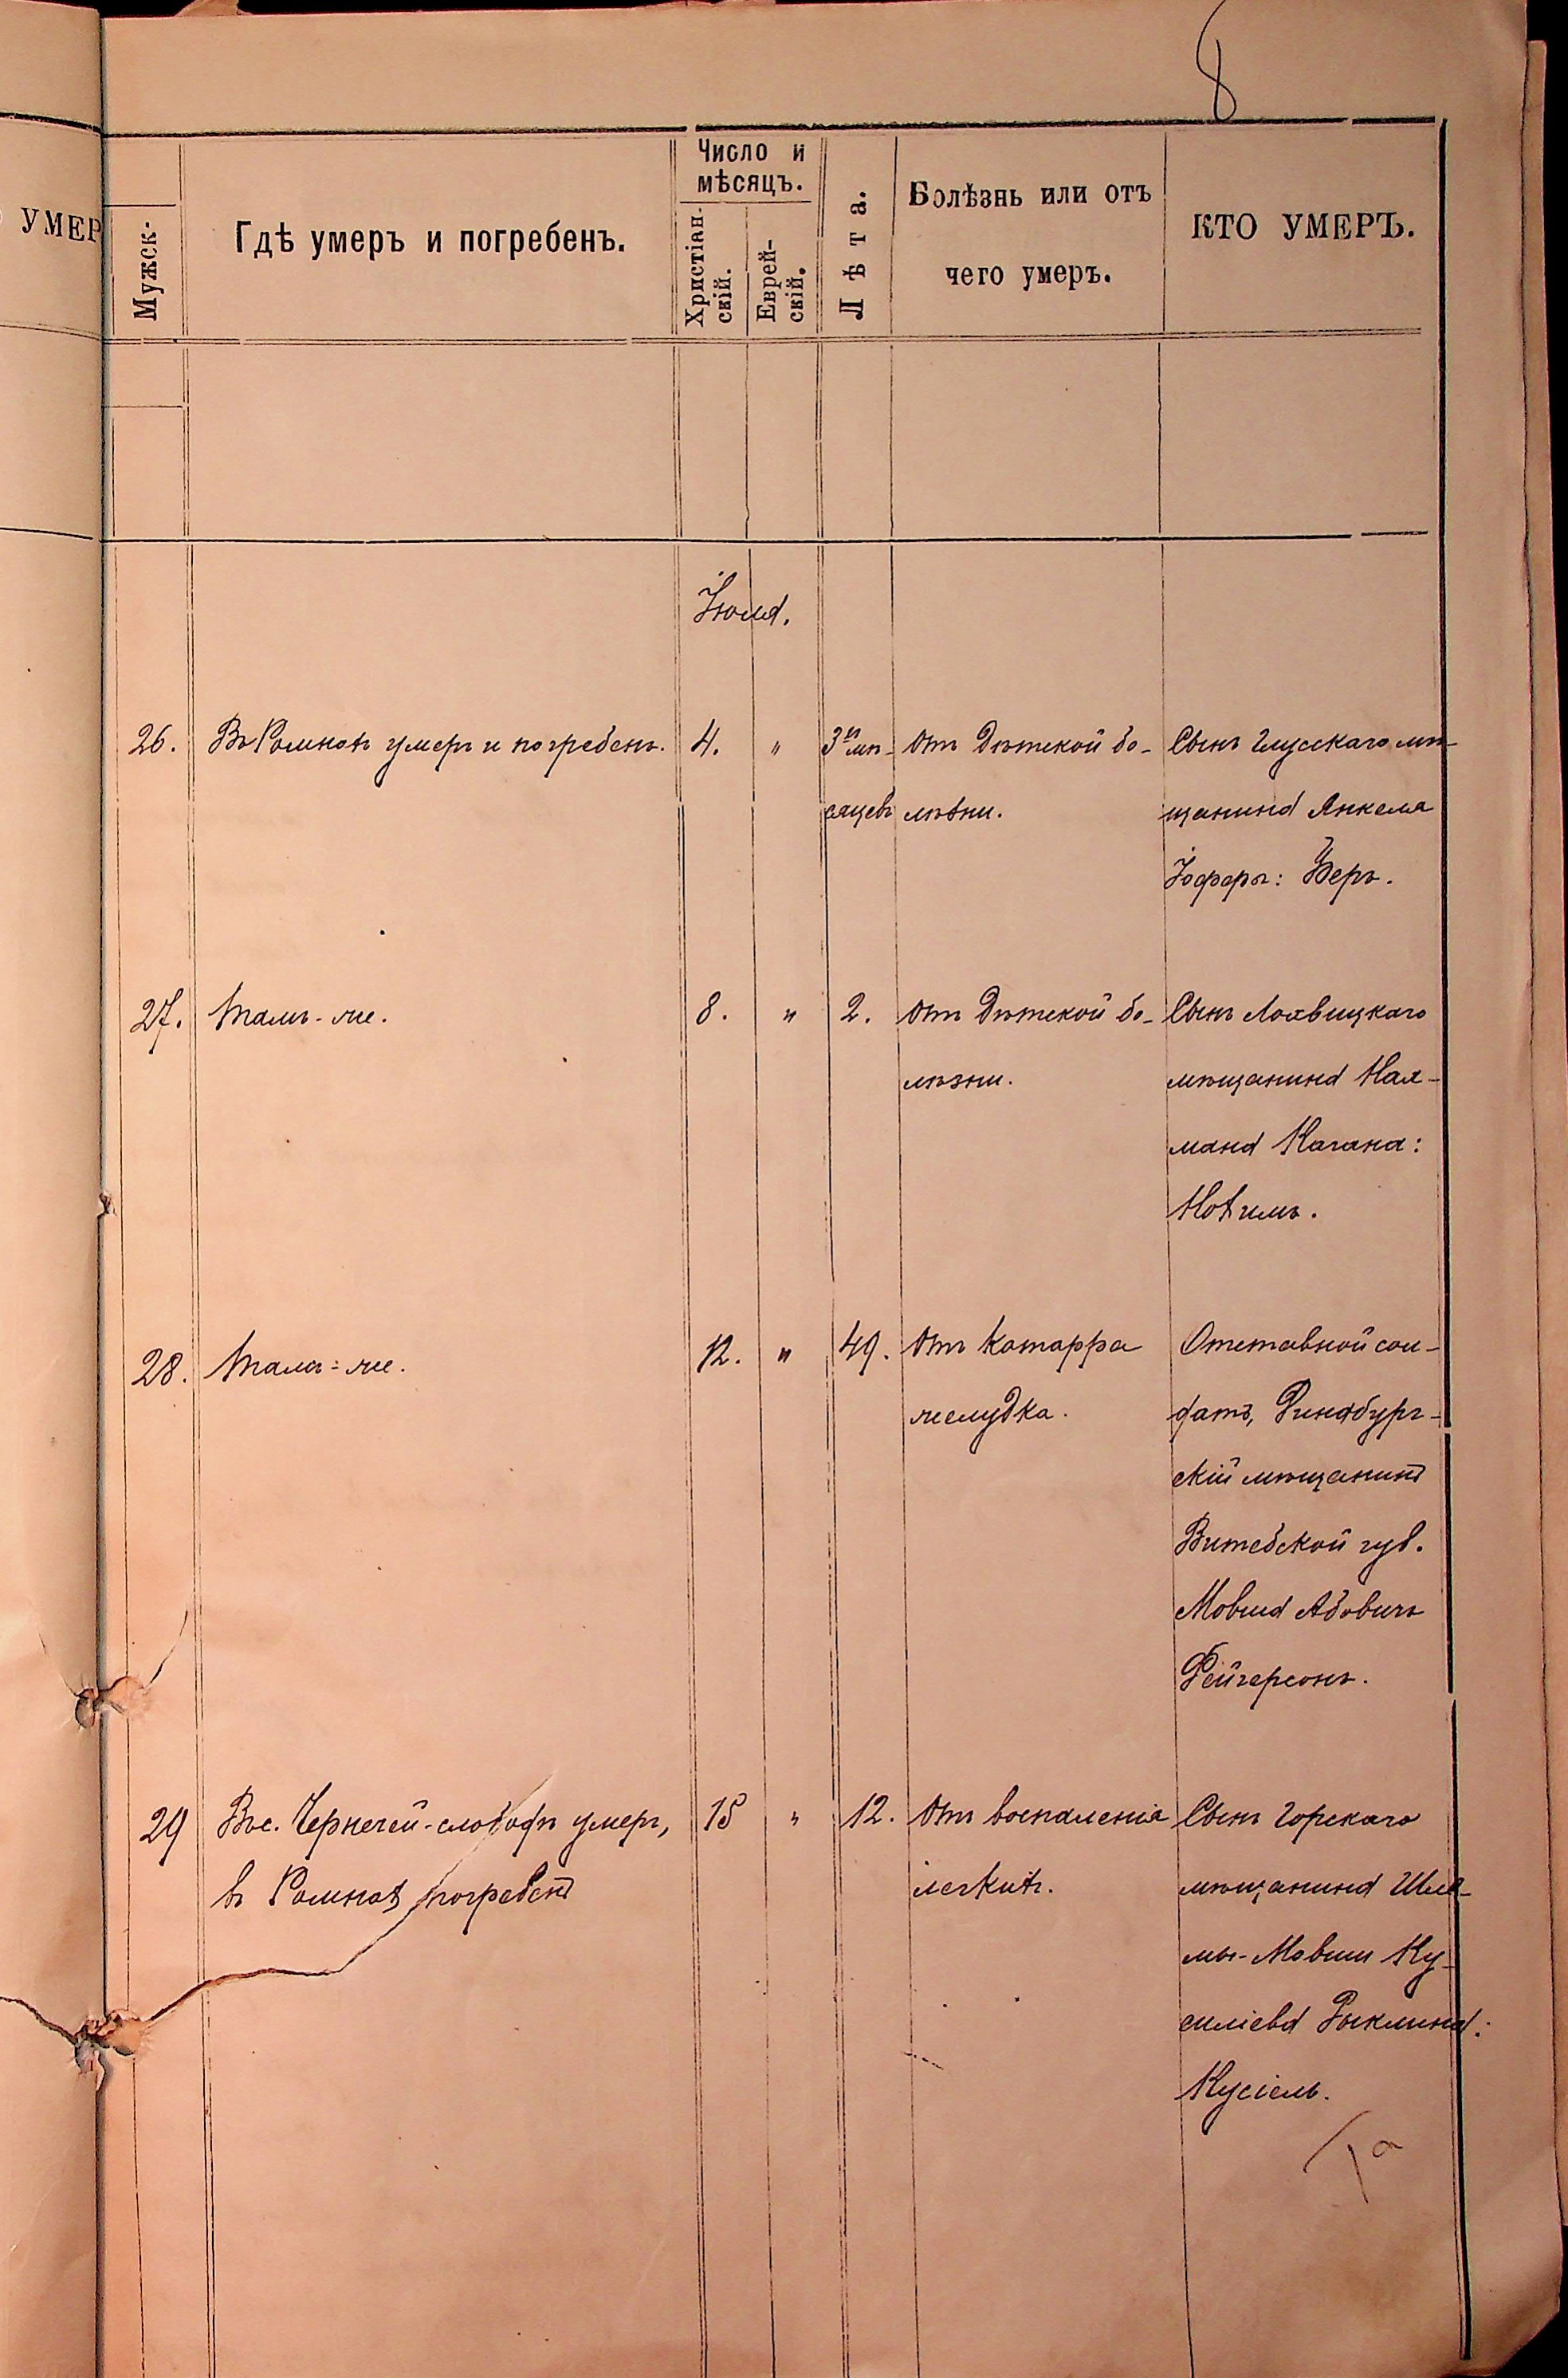 8
УМЕР
Мужск-
Гдѣ умеръ и погребенъ.
Число и
мѣсяцъ.
Христіан-
скій.
Еврей-
скій.
Лѣта.
Болѣзнь или отъ
чего умеръ.
КТО УМЕРЪ.
Іюля.
26.
Въ Ромнахъ умеръ и погребенъ.
4.
"
3хъ мѣ-
сяцевъ
отъ дѣтской бо-
лѣзни.
Сынъ Глусскаго мѣ-
щанина Янкеля
Іоффе: Беръ.
27.
Тамъ-же.
8.
"
2.
отъ дѣтской бо-
лѣзни.
Сынъ Лохвицкаго
мѣщанина Нах-
мана Кагана:
28.
Тамъ-же.
12.
"
49.
отъ катарра
желудка.
Отставной сол-
датъ, Динабург-
скій мѣщанинъ
Витебской губ.
Мовша Абовичъ
Фейгерсонъ.
29
Въ с. Чернечей-слободѣ умеръ,
въ Ромнахъ погребенъ
15
"
12.
отъ воспаленія
легкихъ.
Сынъ Горскаго
мѣщанина Шле-
мы-Мовши Ку-
силіева Рыклина:
Кусіель.